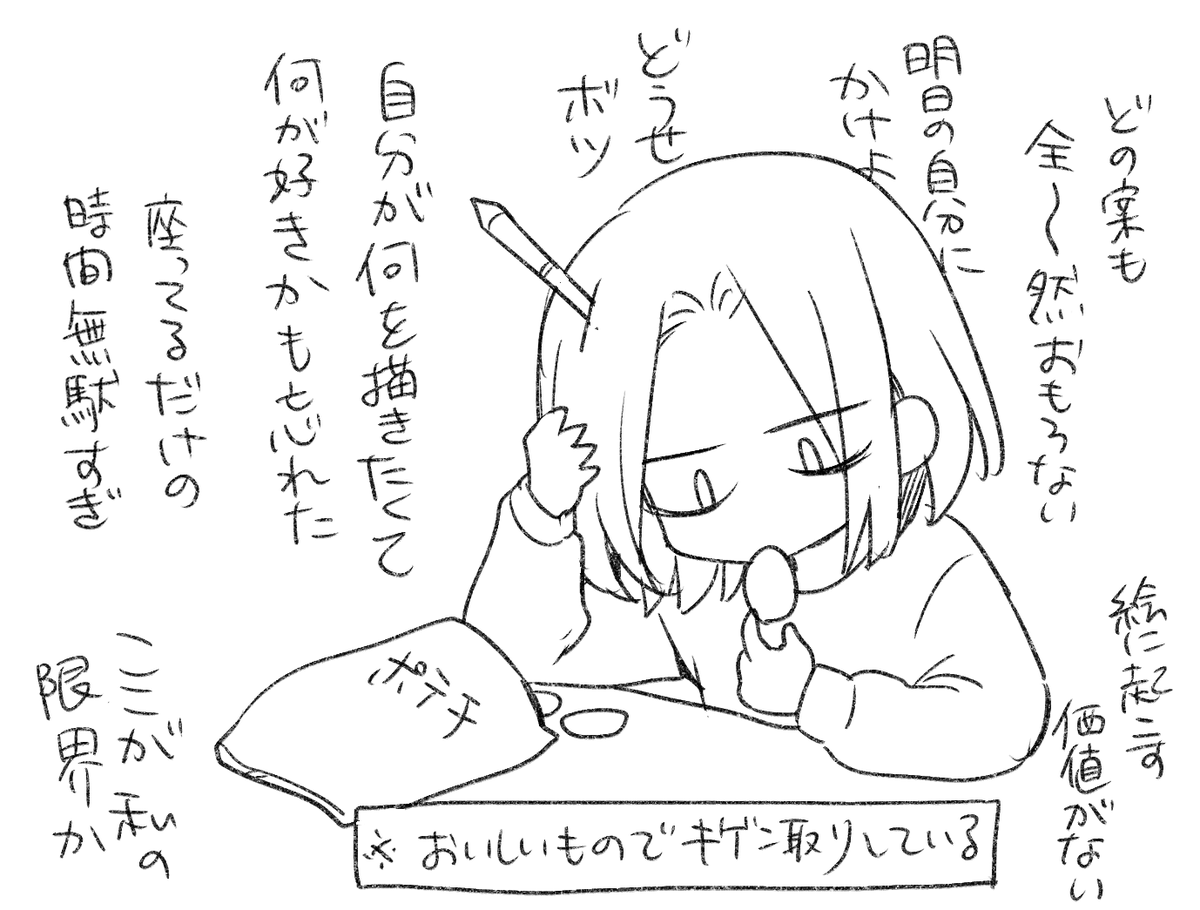 どの案も
全〜然おもろない
明日の自分に
かけよ
どうせ
ボツ
自分が何を描きたくて
何が好きかも忘れた
座ってるだけの
時間無駄すぎ
絵に起こす
価値がない
ここが私の
限界か
ポテチ
※おいしいものでキゲン取りしている